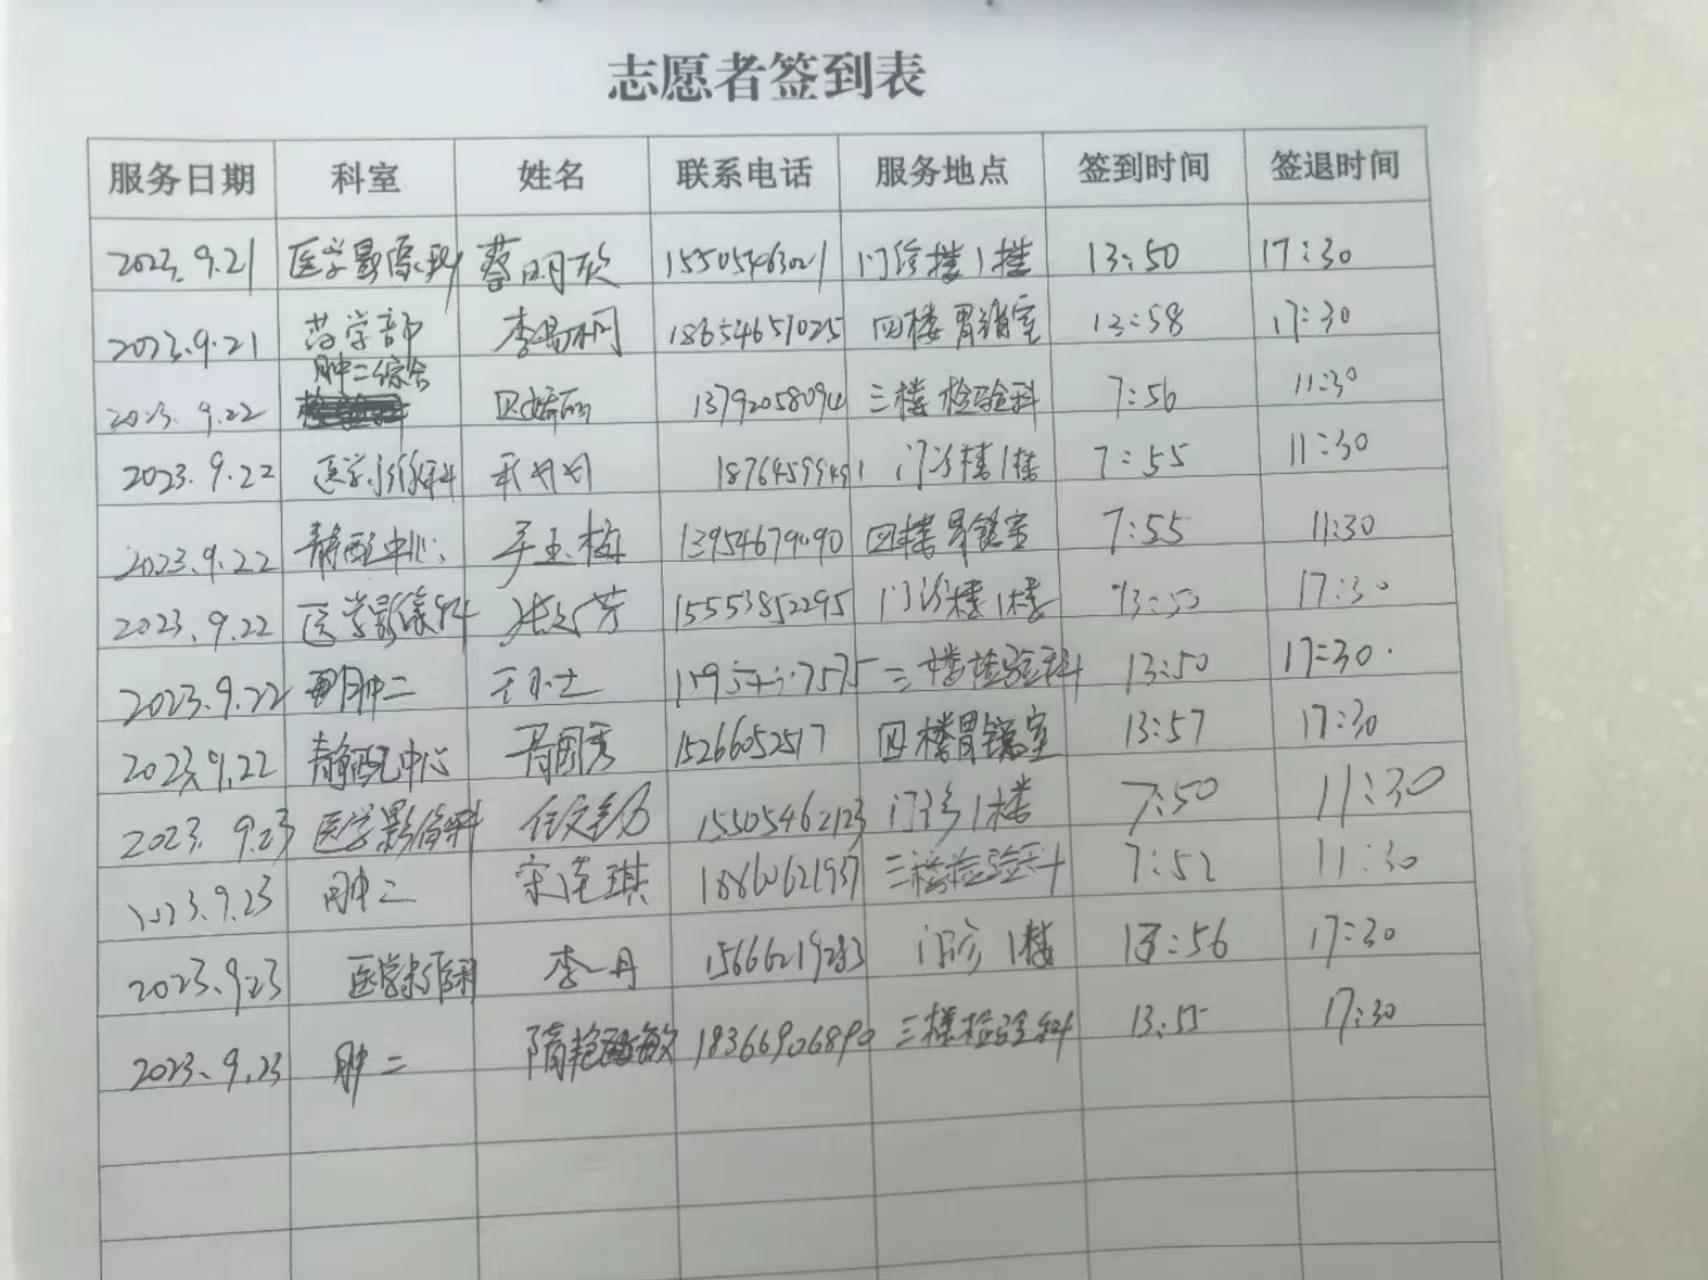 志愿者签到表
服务日期 科室 姓名 联系电话 服务地点 签到时间 签退时间
2023.9.21 医学影像科 蔡明欣 15505463021 门诊楼1楼 13:50 17:30
2023.9.21 药学部 李 18654657025 四楼胃镜室 13:58 17:30
肿二综合
2023.9.22 13792058094 三楼检验科 7:56 11:30
2023.9.22 医学影像科 门诊楼1楼 7:55 11:30
2023.9.22 静配中心 玉梅 四楼胃镜室 7:55 11:30
2023.9.22 医学影像科 芳 15553852295 门诊楼1楼 13:50 17:30
2023.9.22 肿二 三楼检验科 13:50 17:30
2023.9.22 静配中心 15266052517 四楼胃镜室 13:57 17:30
2023.9.23 医学影像科 任 15505462123 门诊1楼 7:50 11:30
2023.9.23 肿二 宋莲琪 18860621937 三楼检验科 7:52 11:30
2023.9.23 医学影像科 李一丹 15666219283 门诊1楼 13:56 17:30
2023.9.23 肿二 隋艳敏 18366906890 三楼检验科 13:55 17:30